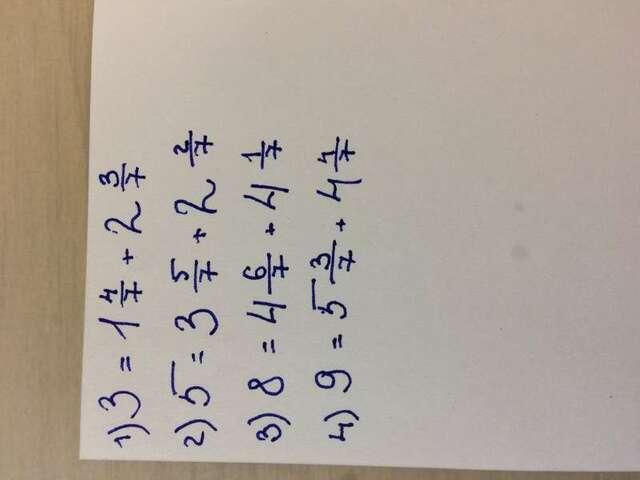 1) 3 = 1 4/7 + 2 3/7
2) 5 = 3 5/7 + 2 2/7
3) 8 = 4 6/7 + 4 1/7
4) 9 = 5 3/7 + 4 4/7